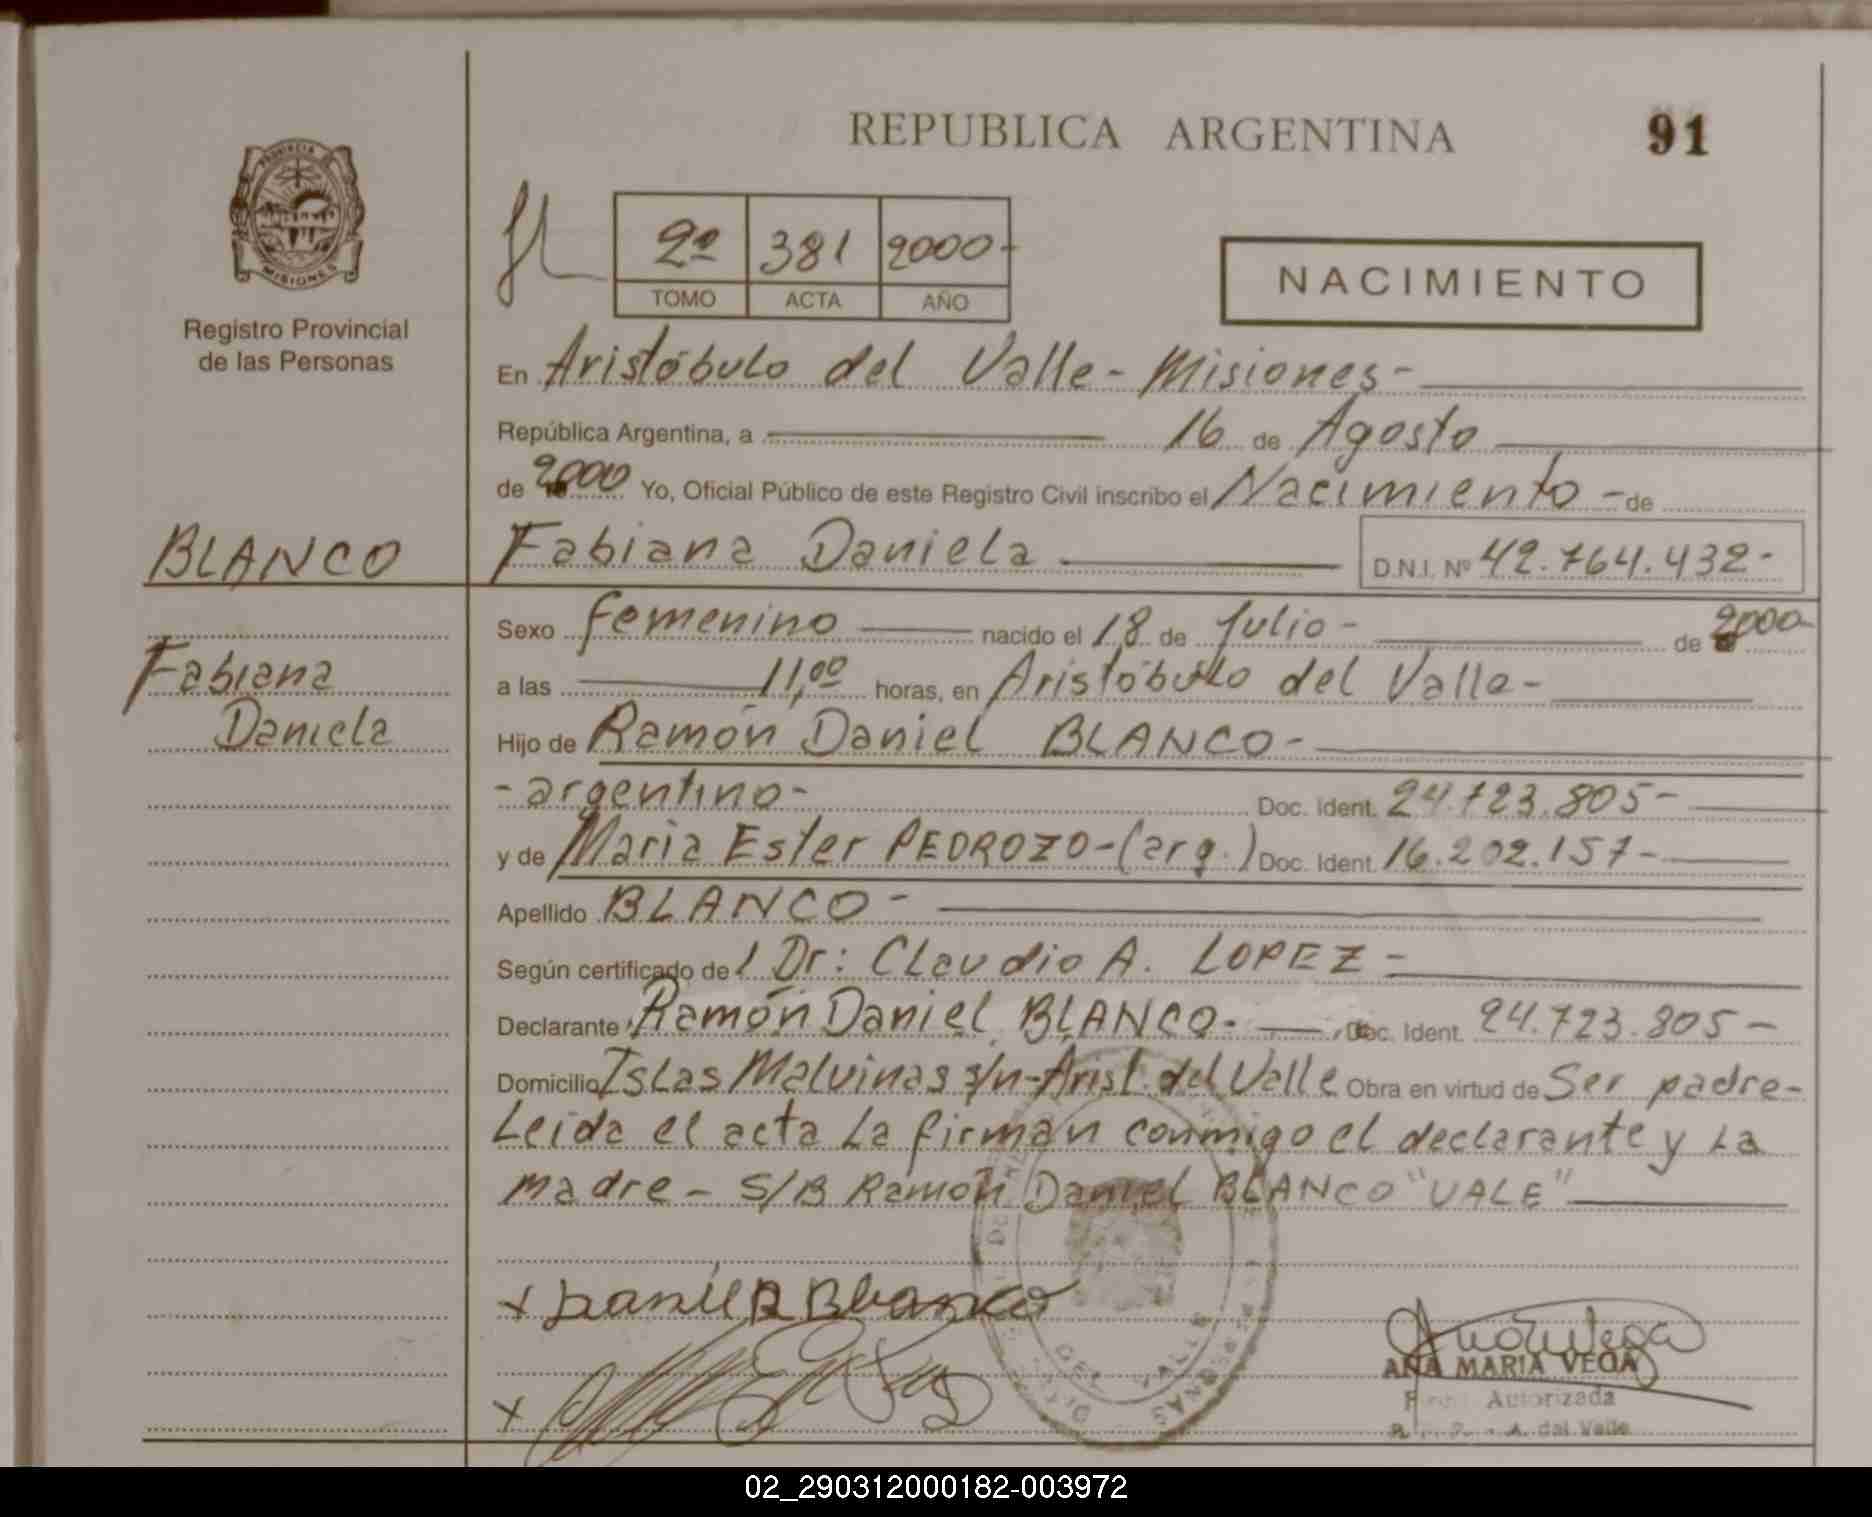 REPUBLICA ARGENTINA
91
PROVINCIA DE
MISIONES
Registro Provincial
de las Personas
2º 381 2000-
TOMO ACTA AÑO
NACIMIENTO
En Aristóbulo del Valle- Misiones-
República Argentina, a 16 de Agosto
de 2000 Yo, Oficial Público de este Registro Civil inscribo el Nacimiento - de
BLANCO
Fabiana Daniela
D.N.I. Nº 42.764.432-
Fabiana
Daniela
Sexo femenino nacido el 18 de Julio- de 2000-
a las 11,00 horas, en Aristóbulo del Valle-
Hijo de Ramón Daniel BLANCO-
-argentino- Doc. Ident. 24.723.805-
y de Maria Ester PEDROZO-(arg.) Doc. Ident. 16.202.157-
Apellido BLANCO-
Según certificado de/ Dr: Claudio A. LOPEZ-
Declarante Ramón Daniel BLANCO- Doc. Ident. 24.723.805-
Domicilio Islas Malvinas s/n-Arist. del Valle Obra en virtud de Ser padre-
Leida el acta La firman conmigo el declarante y La
madre- S/B Ramón Daniel BLANCO "VALE"
x Daniel R Blanco
x
DEL VALLE
ANA MARIA VEGA
Autorizada
A. del Valle
02_290312000182-003972